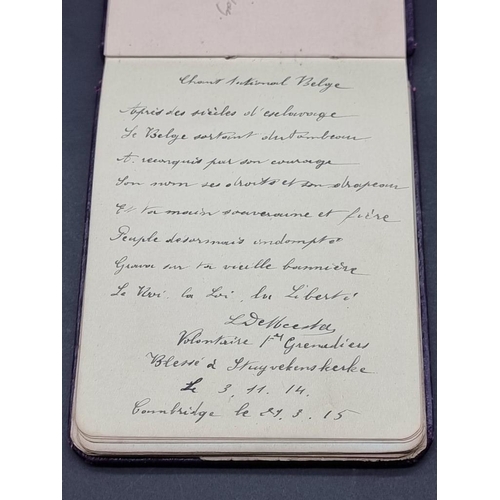 Chant National Belge
Après des siècles d'esclavage
Le Belge sortant du tombeau
A reconquis par son courage
Son nom ses droits et son drapeau
Et ta main souveraine et fière
Peuple désormais indompté
Grava sur ta vieille bannière
Le Roi, la Loi, la Liberté
Volontaire 1er Grenadiers
Blessé à Stuyvekenskerke
Le 3. 11. 14.
Cambridge le 3 15